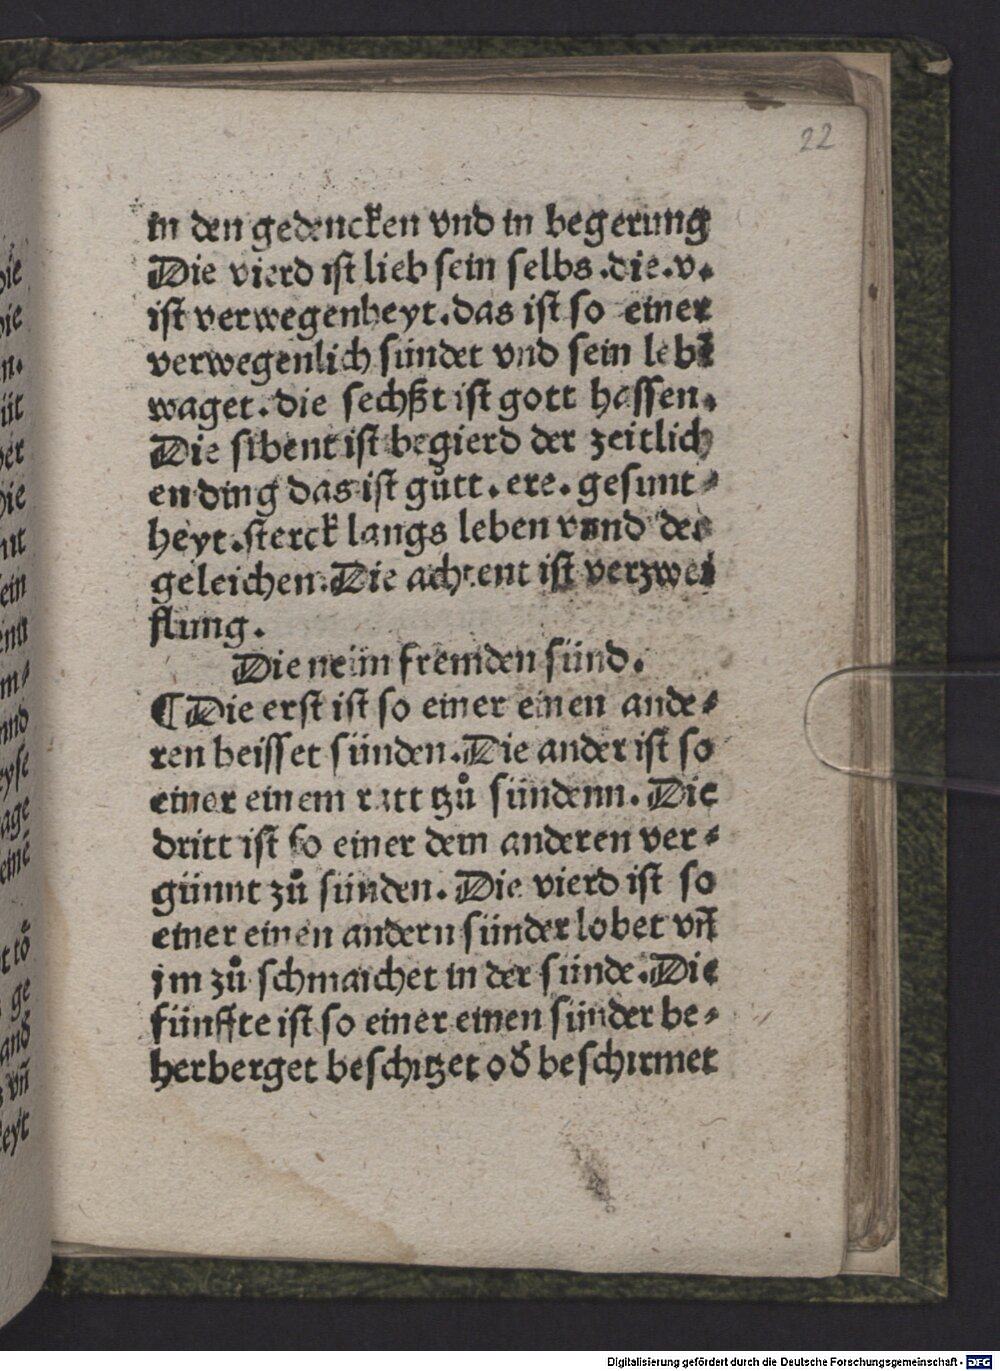 22
in den gedencken vnd in begerung
Die vierd ist lieb sein selbs .die .v.
ist verwegenheyt .das ist so einer
verwegenlich sündet vnd sein lebē
waget .die sechßt ist gott hassen.
Die sibent ist begierd der zeitlich
en ding das ist gůtt . ere . gesunt⸗
heyt .sterck langs leben vnnd des
geleichen .Die achtent ist verzwei
flung .
Die neün fremden sünd .
¶ Die erst ist so einer einen ande⸗
ren heisset sünden .Die ander ist so
einer einem ratt tzů sündenn . Die
dritt ist so einer dem anderen ver⸗
günnt zů sünden . Die vierd ist so
einer einen andern sünder lobet vñ
jm zů schmaichet in der sünde .Die
fünffte ist so einer einen sünder be⸗
herberget beschitzet od̾ beschirmet
Digitalisierung gefördert durch die Deutsche Forschungsgemeinschaft - DFG